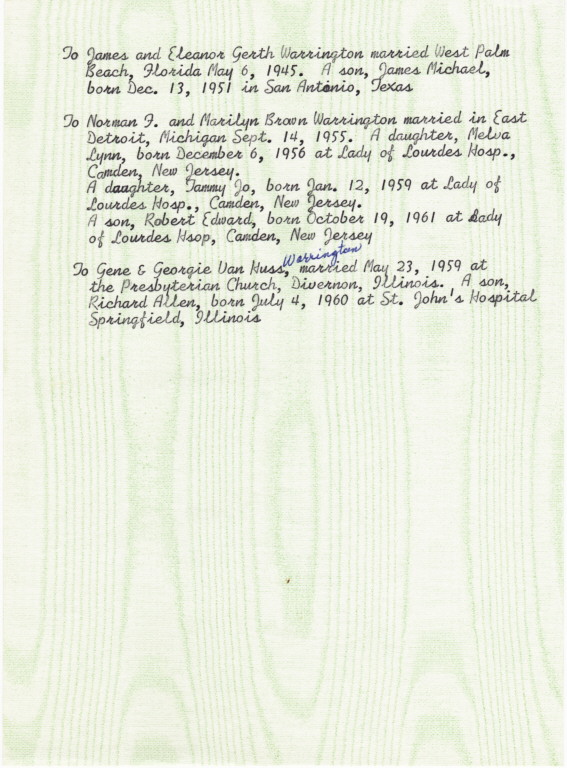 To James and Eleanor Gerth Warrington married West Palm
Beach, Florida May 6, 1945. A son, James Michael,
born Dec. 13, 1951 in San Antonio, Texas
To Norman F. and Marilyn Brown Warrington married in East
Detroit, Michigan Sept. 14, 1955. A daughter, Melva
Lynn, born December 6, 1956 at Lady of Lourdes Hosp.,
Camden, New Jersey.
A daughter, Tammy Jo, born Jan. 12, 1959 at Lady of
Lourdes Hosp., Camden, New Jersey.
A son, Robert Edward, born October 19, 1961 at Lady
of Lourdes Hsop, Camden, New Jersey
Warrington
To Gene & Georgie Van Huss, married May 23, 1959 at
the Presbyterian Church, Divernon, Illinois. A son,
Richard Allen, born July 4, 1960 at St. John's Hospital
Springfield, Illinois